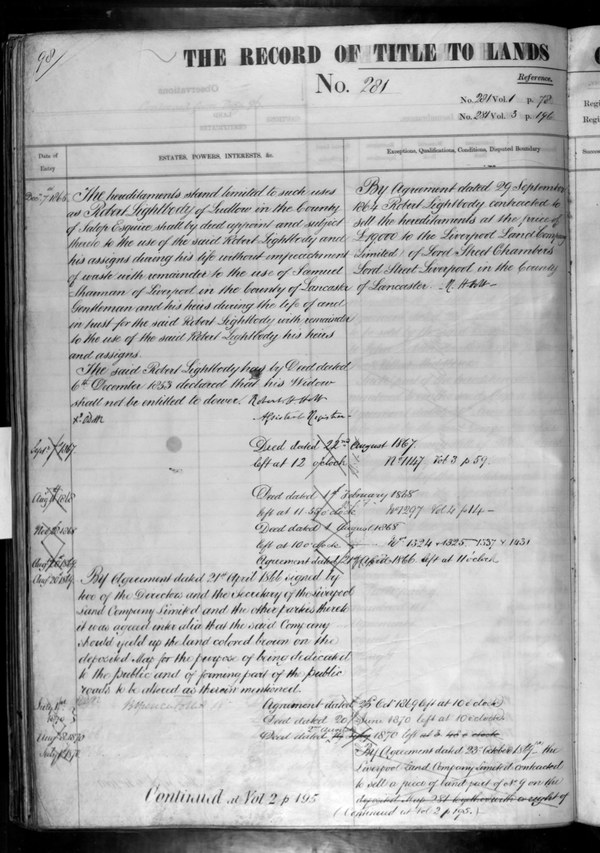 98
THE RECORD OF TITLE TO LANDS
No. 281
Reference.
No. 281 Vol. 1 p. 78
No. 281 Vol. 3 p. 196
Date of Entry
ESTATES, POWERS, INTERESTS, &c.
Exceptions, Qualifications, Conditions, Disputed Boundary
The hereditaments stand limited to such uses
as Robert Lightbody of Ludlow in the County
of Salop Esquire shall by deed appoint and subject
thereto to the use of the said Robert Lightbody and
his assigns during his life without impeachment
of waste with remainder to the use of Samuel
of Liverpool in the County of Lancaster
Gentleman and his heirs during the life of and
in trust for the said Robert Lightbody with remainder
to the use of the said Robert Lightbody his heirs
and assigns.
The said Robert Lightbody has by Deed dated
6th December 1853 declared that his Widow
shall not be entitled to dower. Robert H Holt
Assistant Registrar
By Agreement dated 29 September
1864 Robert Lightbody contracted to
sell the hereditaments at the price of
to the Liverpool Land Company
Limited of Lord Street Chambers
Lord Street Liverpool in the County
of Lancaster.
Sept 1867
Deed dated 22nd August 1867
left at 12 o'clock No 1147 Vol 3 p 59.
Aug 1868
Deed dated 1st February 1868
left at 11.50 o'clock No 1297 Vol 4 p 14
1868
Deed dated 1 August 1868
left at 10 o'clock No 1324 & 1325 1337 & 1431
Agreement dated 21st April 1866 left at 11 o'clock
Aug 26 1869
By Agreement dated 21st April 1866 signed by
two of the Directors and the Secretary of the Liverpool
Land Company Limited and the other parties thereto
it was agreed inter alia that the said Company
should yield up the land colored brown on the
deposited Map for the purpose of being dedicated
to the public and of forming part of the public
roads to be allowed as therein mentioned.
Agreement dated 25 Oct 1869 left at 10 o'clock
Deed dated 20 June 1870 left at 10 o'clock
Deed dated 1870 left at o'clock
By Agreement dated 25 October 1869 the
Liverpool Land Company Limited contracted
to sell a piece of land part of No 9 on the
deposited Map 281 together with a right of
(Continued at Vol 2 p 195.)
Continued at Vol 2 p 195